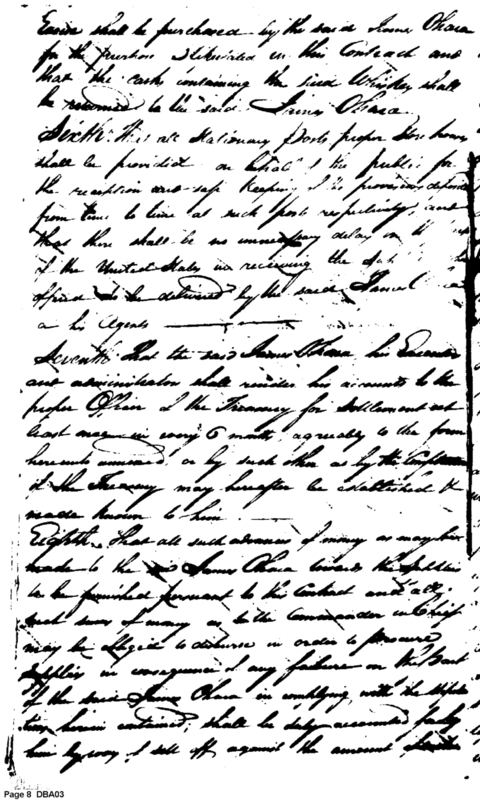 shall be purchased by the said James Ohara
for the purpose stipulated in this Contract and
that the casks containing the said Whiskey shall
be returned to the said James Ohara
Sixth. That all Stationary Posts proper Store houses
shall be provided on behalf of the public for
the reception and safe keeping of the provisions deposited
from time to time at such posts respectively, and
that there shall be no unnecessary delay on the
of the United States in receiving the
offered to be delivered by the said James
or his Agents
Seventh That the said James Ohara his Executors
and administrators shall render his accounts to the
proper Officer of the Treasury for Settlement at
least once in every 6 months agreeably to the form
hereunto annexed, or by such other as by the Comptroller
of the Treasury may hereafter be established &
made known to him
Eighth. That all such advances of money as may be
made to the James Ohara towards the Supplies
to be furnished pursuant to this Contract and all
such sums of money as to the Commander in Chief
may be obliged to disburse in order to procure
supplies in consequence of any failure on the Part
of the said James Ohara in complying with the stipula
tions herein contained, shall be duly accounted for by
him by way of set off against the amount
Page 8 DBA03